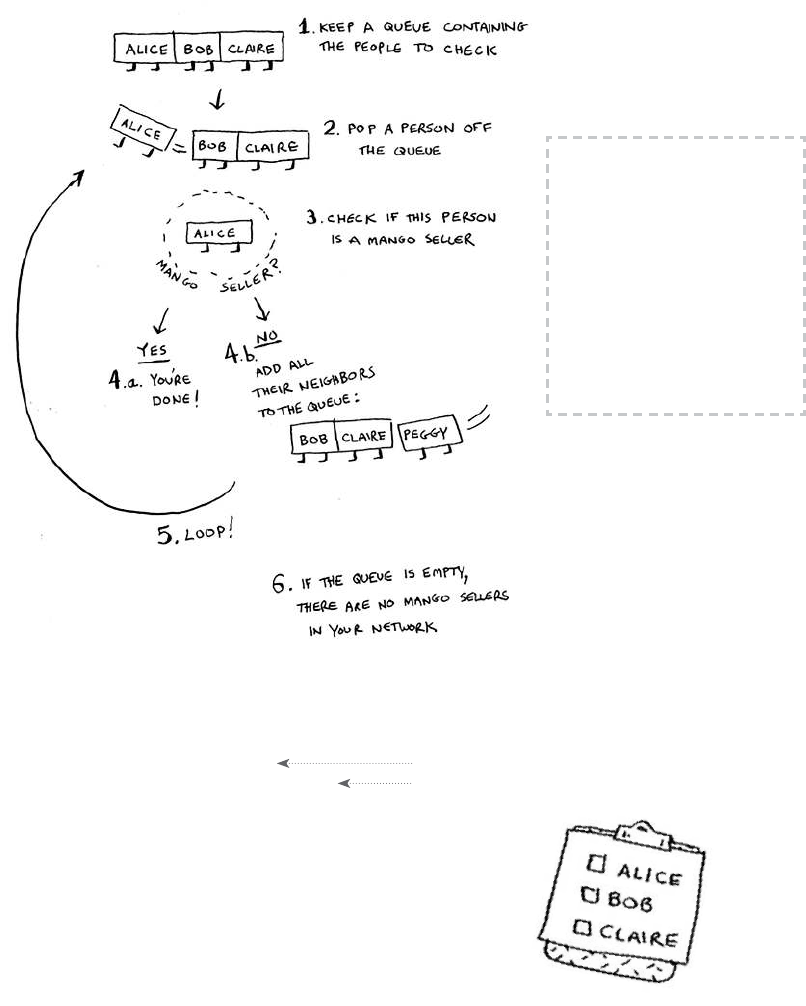 ALICE BOB CLAIRE
1. KEEP A QUEUE CONTAINING
THE PEOPLE TO CHECK
ALICE BOB CLAIRE
2. POP A PERSON OFF
THE QUEUE
ALICE
MANGO SELLER?
3. CHECK IF THIS PERSON
IS A MANGO SELLER
YES
4.a. YOU'RE
DONE!
NO
4.b.
ADD ALL
THEIR NEIGHBORS
TO THE QUEUE:
BOB CLAIRE PEGGY
5. LOOP!
6. IF THE QUEUE IS EMPTY,
THERE ARE NO MANGO SELLERS
IN YOUR NETWORK
ALICE
BOB
CLAIRE